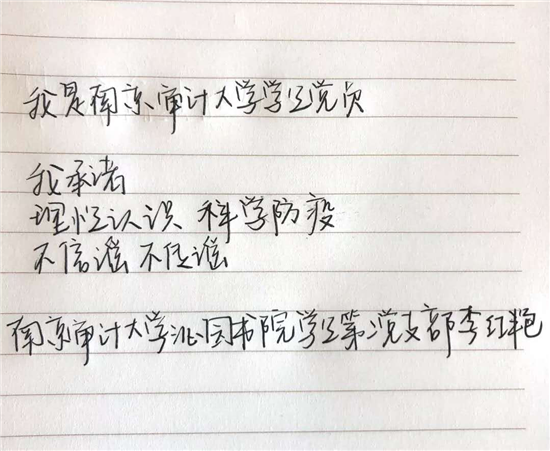 我是南京审计大学学生党员
我承诺
理性认识 科学防疫
不信谣 不传谣
南京审计大学沁园书院学生第党支部李红艳